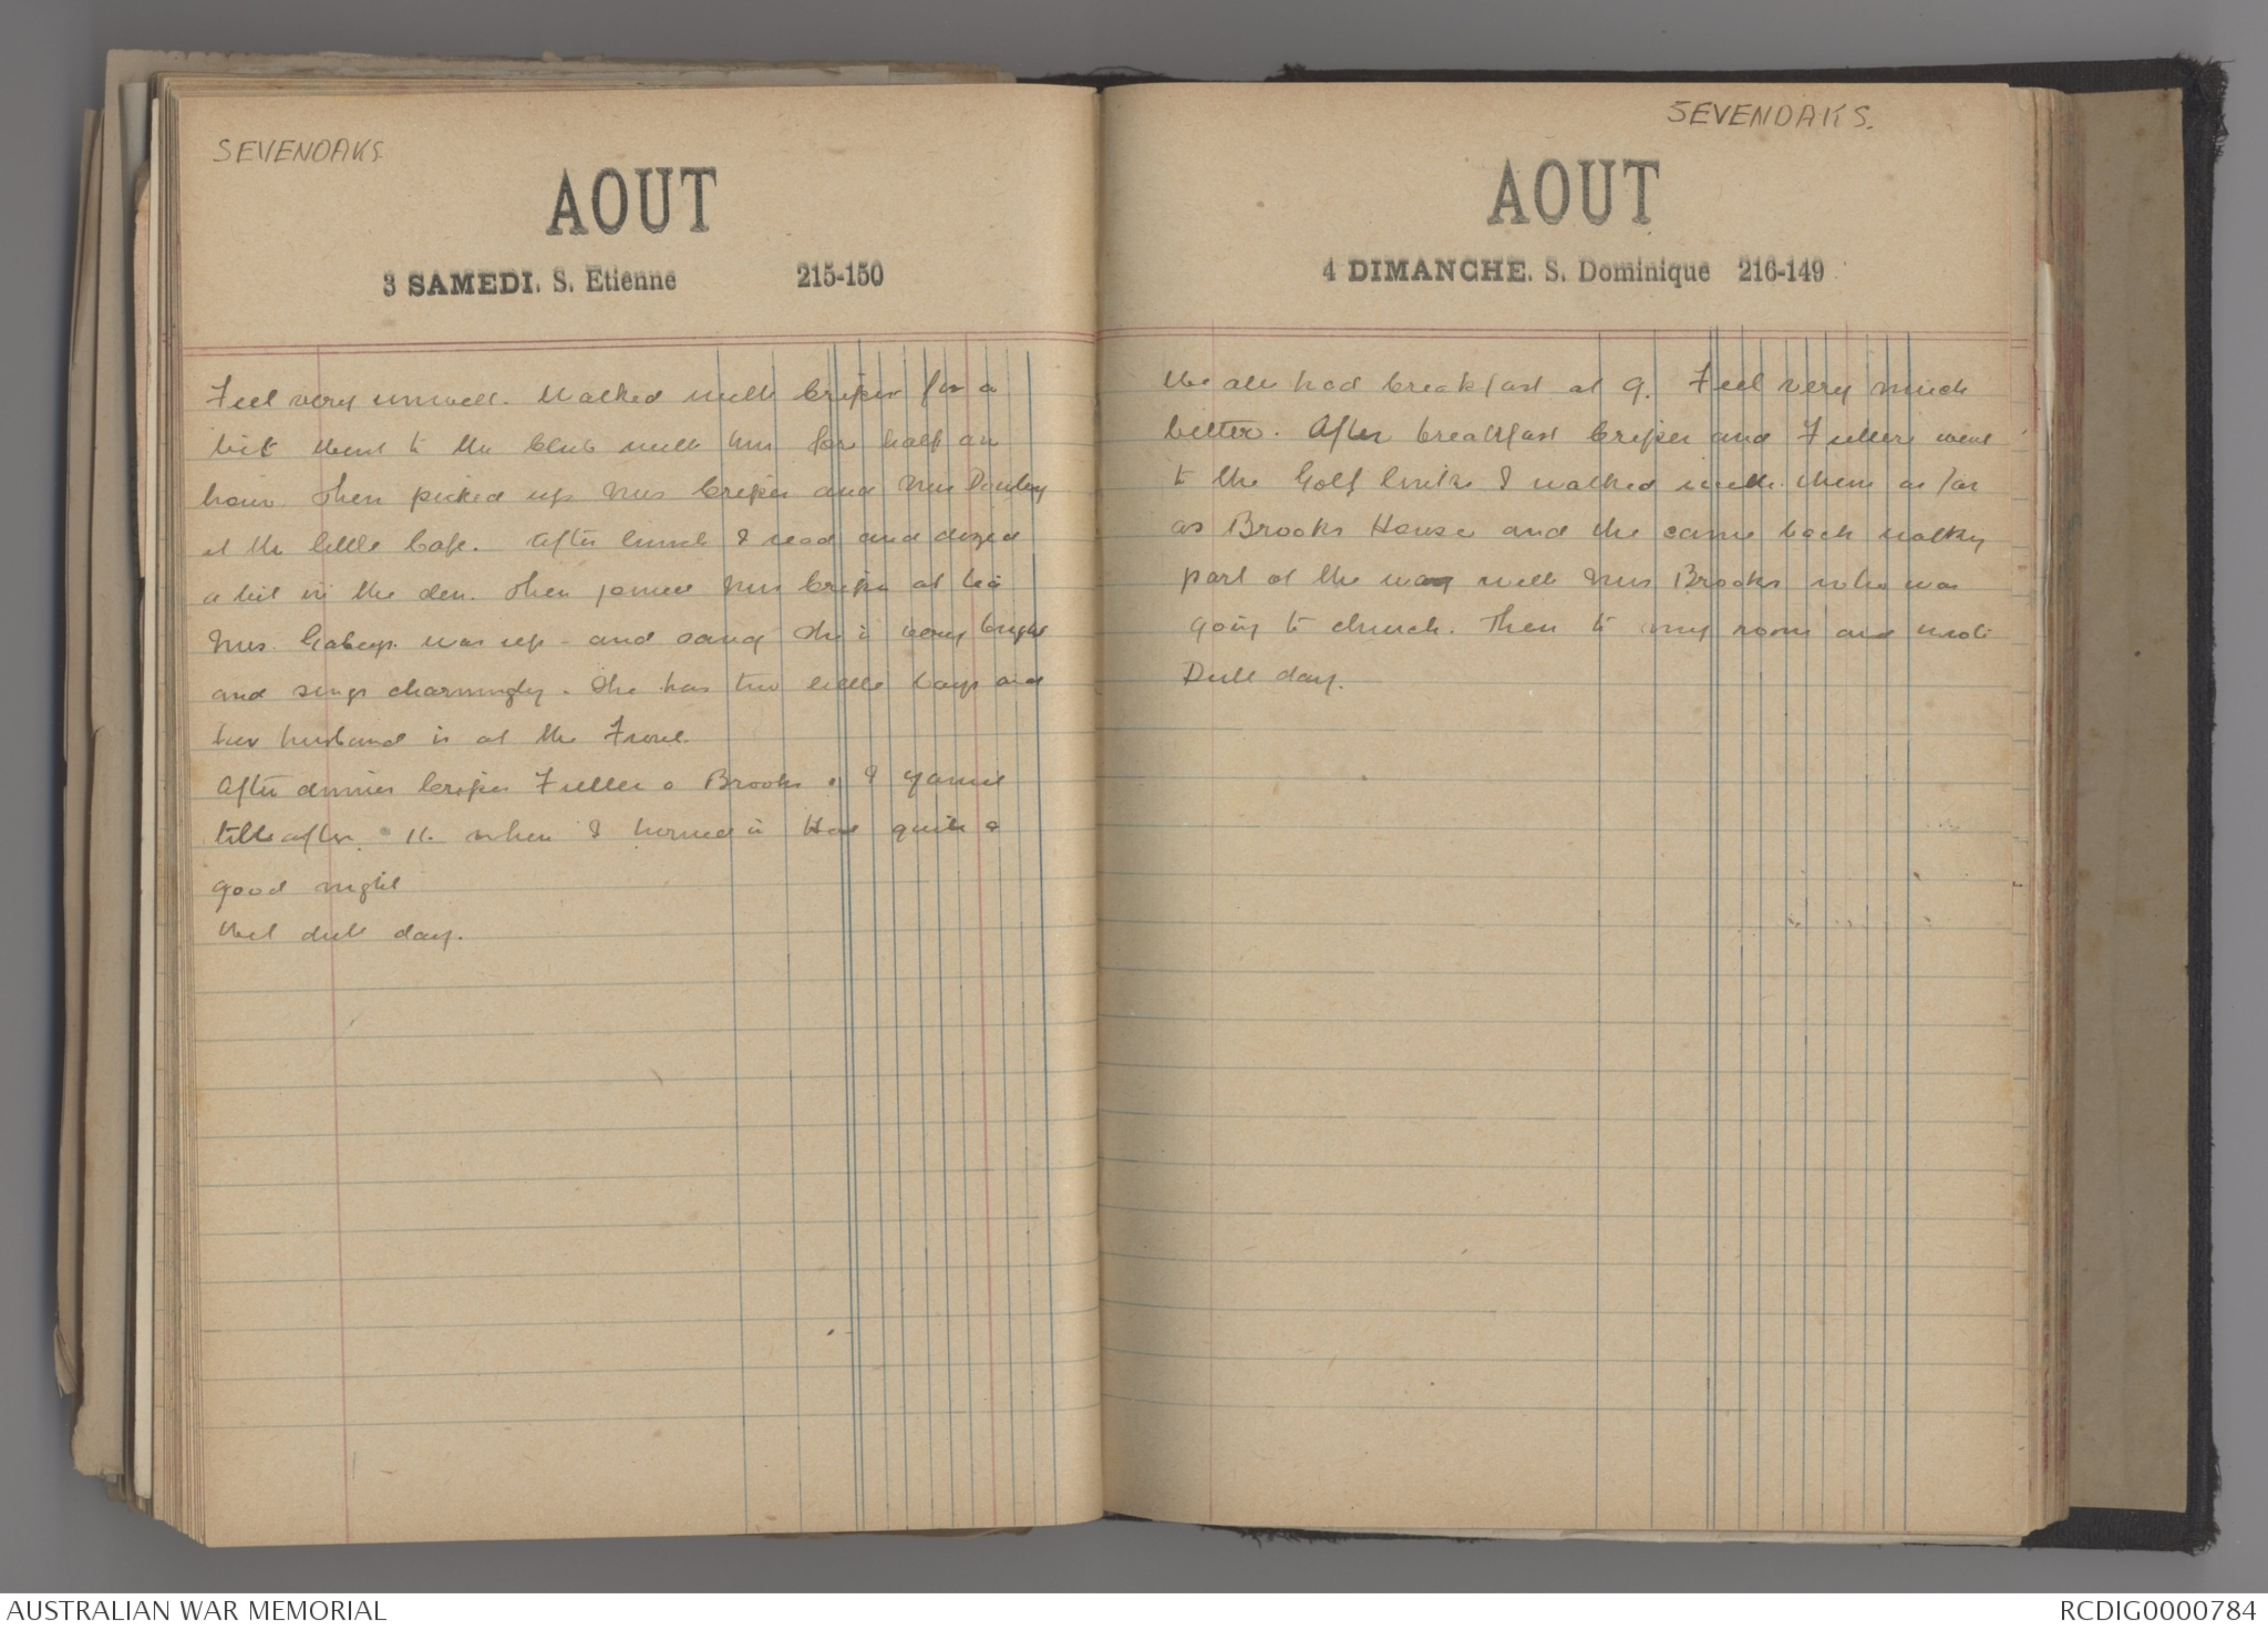 SEVENOAKS.
AOUT
3 SAMEDI. S. Etienne 215-150
Feel very unwell. Walked with Cripin for a
bit Went to the Club with him for half an
hour. Then picked up Mrs Cripin and Mrs
at the little Cafe. After lunch I read and dozed
a bit in the den. Then joined Mrs Cripin at tea
Mrs. was up - and sang She is very bright
and sings charmingly. She has two little boys and
her husband is at the Front.
After dinner Cripin Fuller & Brooks & I yarned
till after 11. when I turned in Had quite a
good night
Wet dull day.
SEVENOAKS.
AOUT
4 DIMANCHE. S. Dominique 216-149
We all had breakfast at 9. Feel very much
better. After breakfast Cripin and Fuller went
to the Golf links I walked with them as far
as Brooks House and the came back walking
part of the way with Mrs Brooks who was
going to church. Then to my room and wrote
Dull day.
AUSTRALIAN WAR MEMORIAL
RCDIG0000784